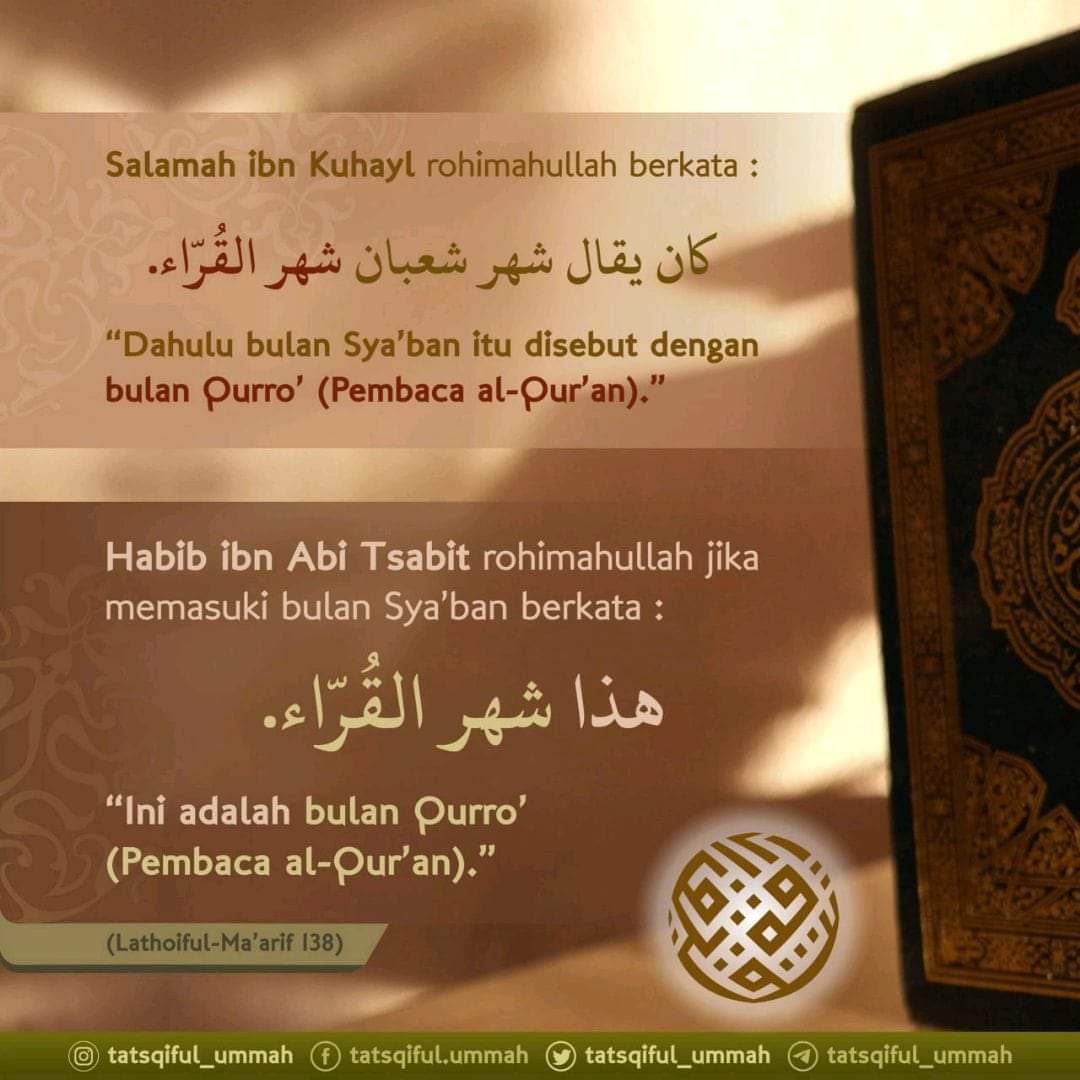 Salamah ibn Kuhayl rohimahullah berkata :
كان يقال شهر شعبان شهر القُرّاء.
“Dahulu bulan Sya’ban itu disebut dengan
bulan Qurro’ (Pembaca al-Qur’an).”
Habib ibn Abi Tsabit rohimahullah jika
memasuki bulan Sya’ban berkata :
هذا شهر القُرّاء.
“Ini adalah bulan Qurro’
(Pembaca al-Qur’an).”
(Lathoiful-Ma’arif 138)
tatsqiful_ummah tatsqiful.ummah tatsqiful_ummah tatsqiful_ummah